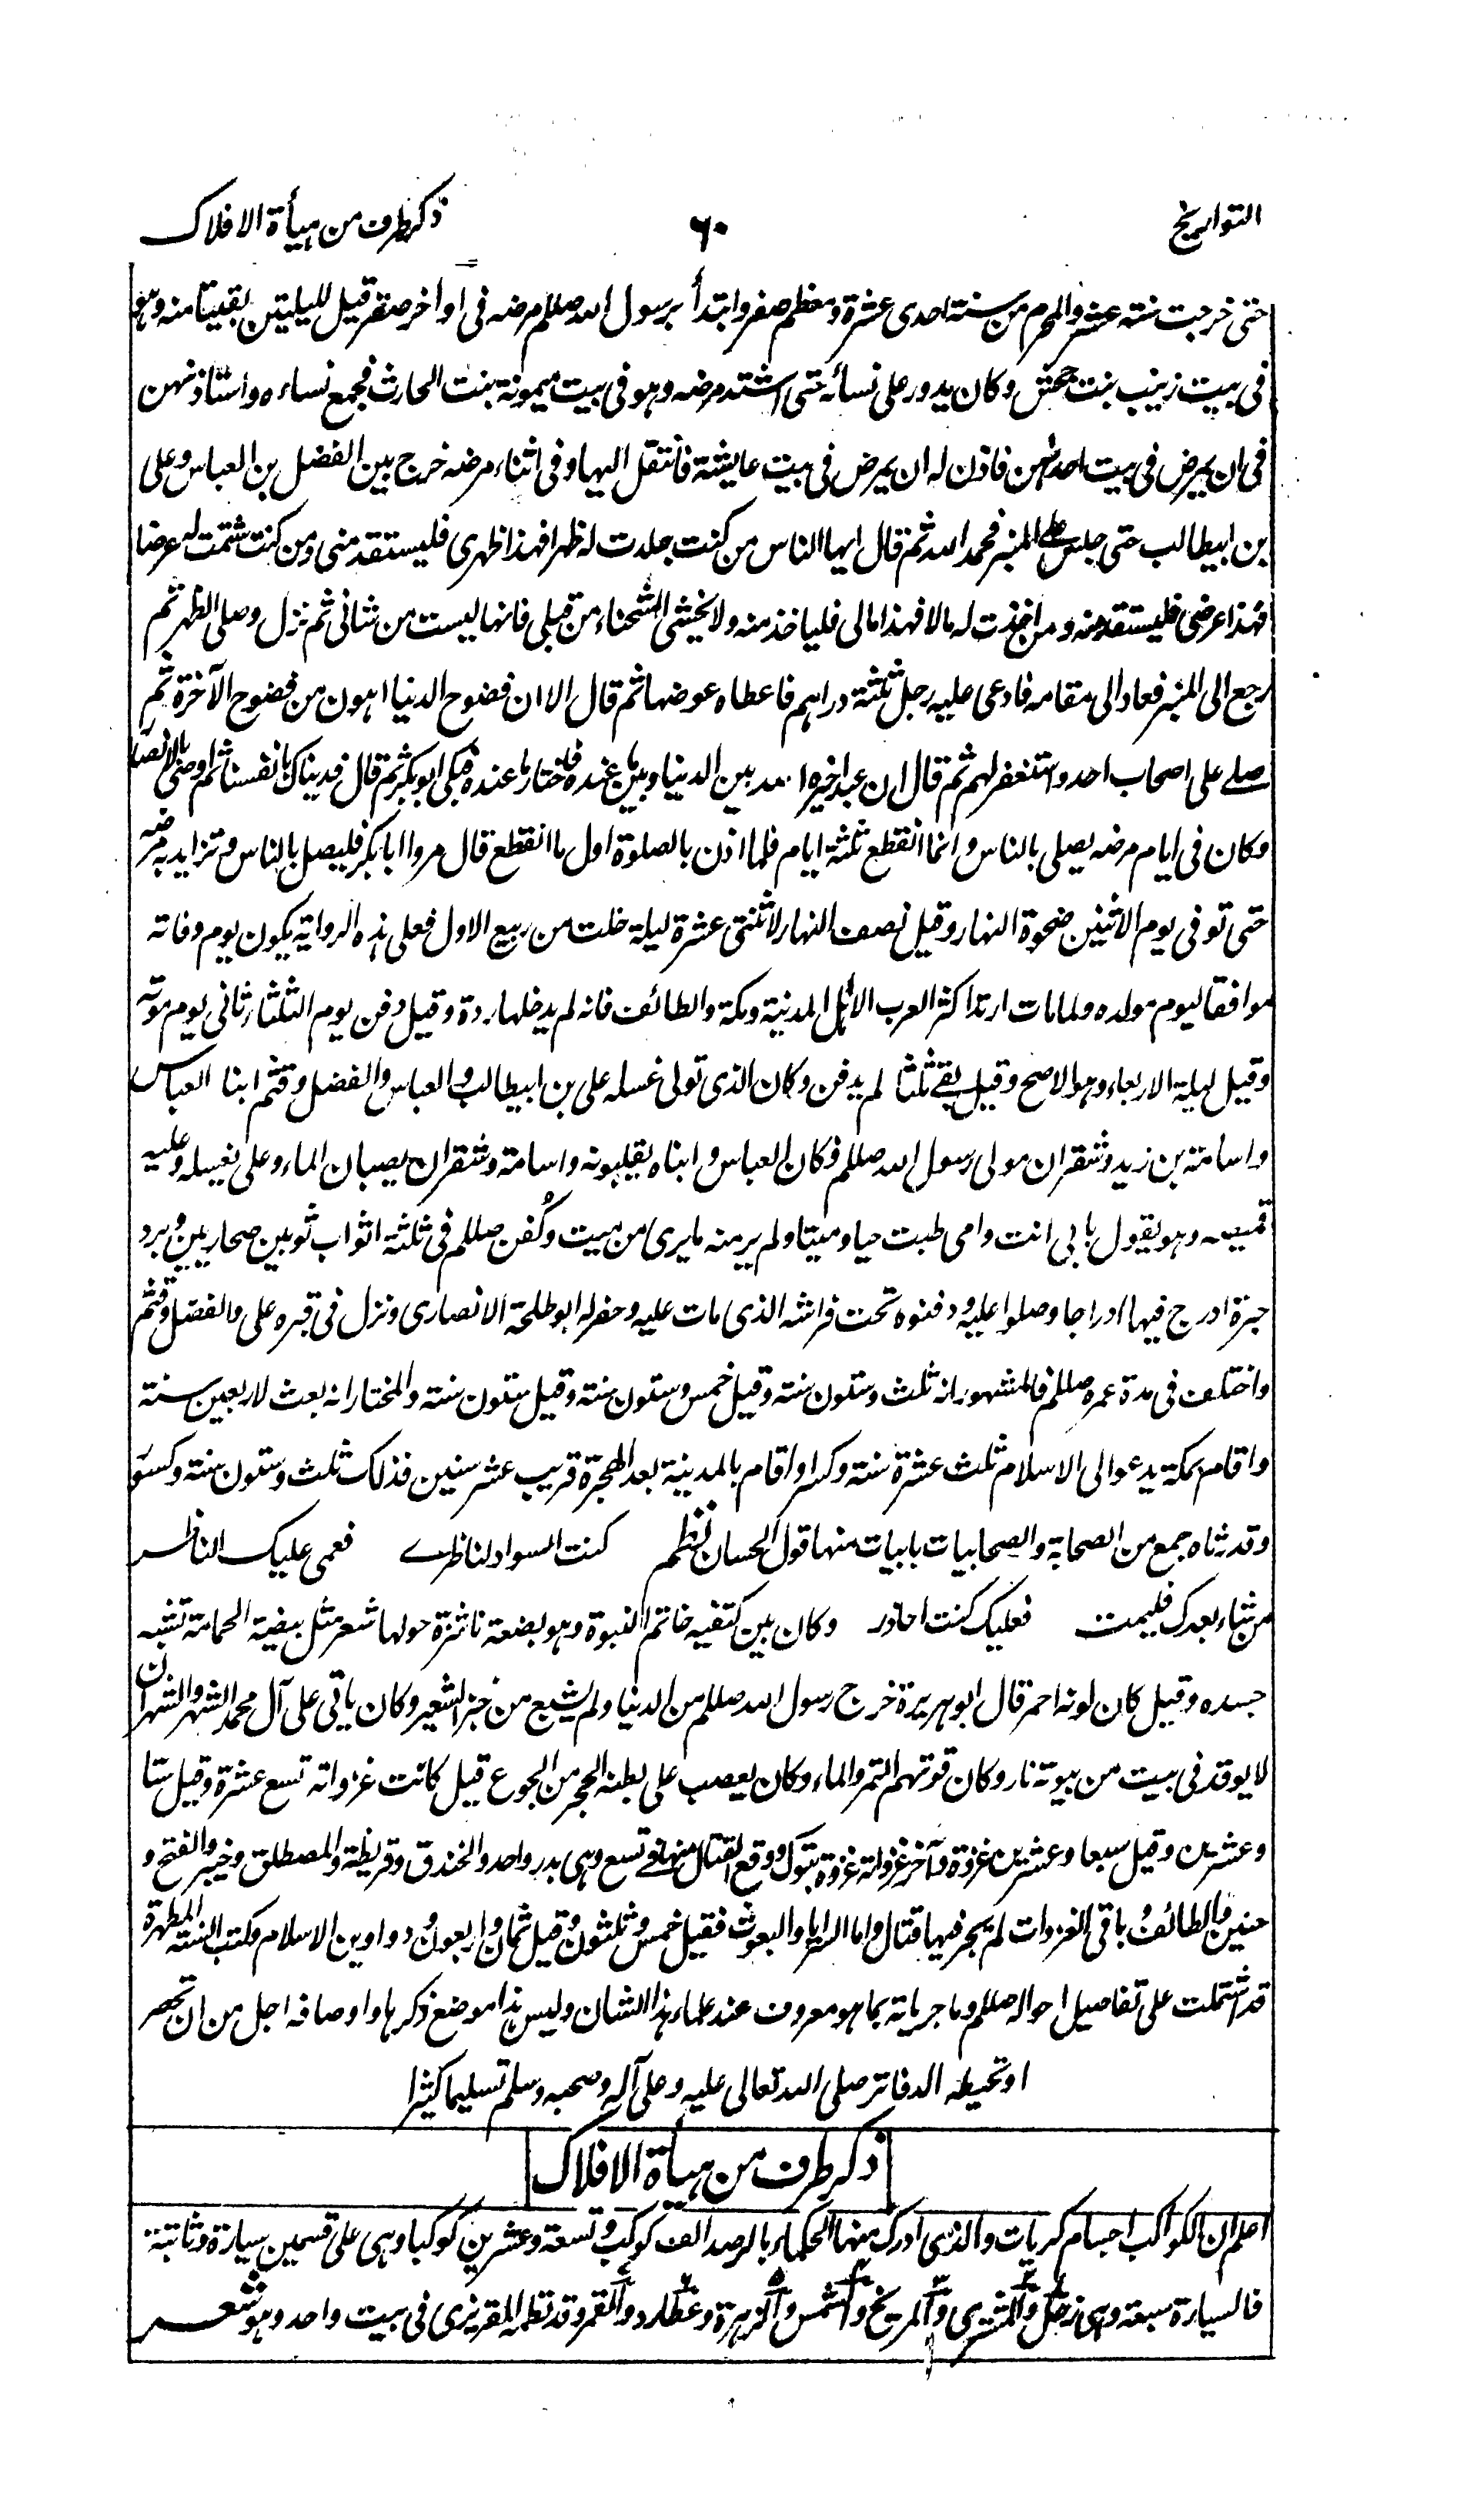 التواريخ
٦٠
ذكر طرف من هيأة الافلاك
حتى خرجت سنة عشر والمحرم من سنة احدى عشرة ومعظم صفر وابتدأ برسول الله صللم مرضه فى اواخر صفر قيل لليلتين بقيتا منه وهو
فى بيت زينب بنت جحش وكان يدور على نسائه حتى اشتد مرضه وهو فى بيت ميمونة بنت الحارث فجمع نساءه واستاذنهن
فى ان يمرض فى بيت احدٰهن فاذن له ان يمرض فى بيت عايشة فانتقل اليها وفى اثناء مرضه خرج بين الفضل بن العباس وعلى
بن ابيطالب حتى جلس على المنبر فحمد الله ثم قال ايها الناس من كنت جلدت له ظهرا فهذا ظهرى فليستقد منى ومن كنت شتمت له عرضا
فهذا عرضى فليستقد منه ومن اخذت له مالا فهذا مالى فلياخذ منه ولا يخشى الشحناء من قبلى فانها ليست من شانى ثم نزل وصلى الظهر ثم
رجع الى المنبر فعاد الى مقامه فادعى عليه رجل ثلثة دراهم فاعطاه عوضها ثم قال الا ان فضوح الدنيا اهون من فضوح الآخرة ثم
صلے على اصحاب احد واستغفر لهم ثم قال ان عبدا خيره الله بين الدنيا وبين ما عنده فاختار ما عنده فبكى ابوبكر ثم قال فديناك بانفسنا ثم اوصى بالانصار
وكان فى ايام مرضه يصلى بالناس وانما انقطع ثلثة ايام فلما اذن بالصلوة اول ما انقطع قال مروا ابابكر فليصل بالناس وتزايد به مرضه
حتى توفى يوم الاثنين ضحوة النهار وقيل نصف النهار لاثنتى عشرة ليلة خلت من ربيع الاول فعلى هذه الرواية يكون يوم وفاته
موافقا ليوم مولده ولما مات ارتد اكثر العرب الا اهل المدينة ومكة والطائف فانه لم يدخلها ردة وقيل دفن يوم الثلثاء ثانى يوم موته
وقيل ليلة الاربعاء وهو الاصح وقيل بقے ثلثا لم يدفن وكان الذى تولى غسله على بن ابيطالب والعباس والفضل وقثم ابنا العباس
واسامة بن زيد وشقران مولى رسول الله صللم فكان العباس وابناه يقلبونه واسامة وشقران يصبان الماء وعلى يغسله وعليه
قميصه وهو يقول بابى انت وامى طبت حيا وميتا ولم ير منه ما يرى من ميت وكُفن صللم فى ثلثة اثواب ثوبين صحاريين وبرد
حبرة ادرج فيها ادراجا وصلوا عليه ودفنوه تحت فراشه الذى مات عليه وحفر له ابو طلحة الانصارى ونزل فى قبره على والفضل وقثم
واختلف فى مدة عمره صللم فالمشهور انه ثلث وستون سنة وقيل خمس وستون سنة وقيل ستون سنة والمختار انه بعث لاربعين سنة
واقام بمكة يدعو الى الاسلام ثلث عشرة سنة وكسرا واقام بالمدينة بعد الهجرة قريب عشر سنين فذلك ثلث وستون سنة وكسور
وقد رثاه جمع من الصحابة والصحابيات بابيات منها قول الحسان نظم كنت السواد لناظرے فعمى عليك الناظر
من شاء بعدك فليمت فعليك كنت احاذر وكان بين كتفيه خاتم النبوة وهو بضعة ناشزة حولها شعر مثل بيضة الحمامة تشبه
جسده وقيل كان لونه احمر قال ابو هريرة خرج رسول الله صللم من الدنيا ولم يشبع من خبز الشعير وكان ياتى على آل محمد الشهر والشهران
لا يوقد فى بيت من بيوته نار وكان قوتهم التمر والماء وكان يعصب على بطنه الحجر من الجوع قيل كانت غزواته تسع عشرة وقيل ستا
وعشرين وقيل سبعا وعشرين غزوة وآخر غزواته غزوة تبوك ووقع القتال منها فے تسع وهى بدر واحد والخندق وقريظة والمصطلق وخيبر والفتح و
حنين والطائف وباقى الغزوات لم يجر فيها قتال واما السرايا والبعوث فقيل خمس وثلثون وقيل ثمان واربعون ودواوين الاسلام وكتب السنة المطهرة
قد اشتملت على تفاصيل احواله صللم وماجرياته بما هو معروف عند علماء هذا الشان وليس هذا موضع ذكرها واوصافه اجل من ان تحصر
او تحيطه الدفاتر صلى الله تعالى عليه وعلى آله وصحبه وسلم تسليما كثيرا
ذكر طرف من هيأة الافلاك
اعلم ان الكواكب اجسام كريات والذى ادرك منها الحكماء بالرصد الف كوكب وتسعة وعشرين كوكبا وهى على قسمين سيارة وثابتة
فالسيارة سبعة وهى زحل والمشترى والمريخ والشمس والزهرة وعطارد والقمر وقد نظمها المقريزى فى بيت واحد وهو شعر